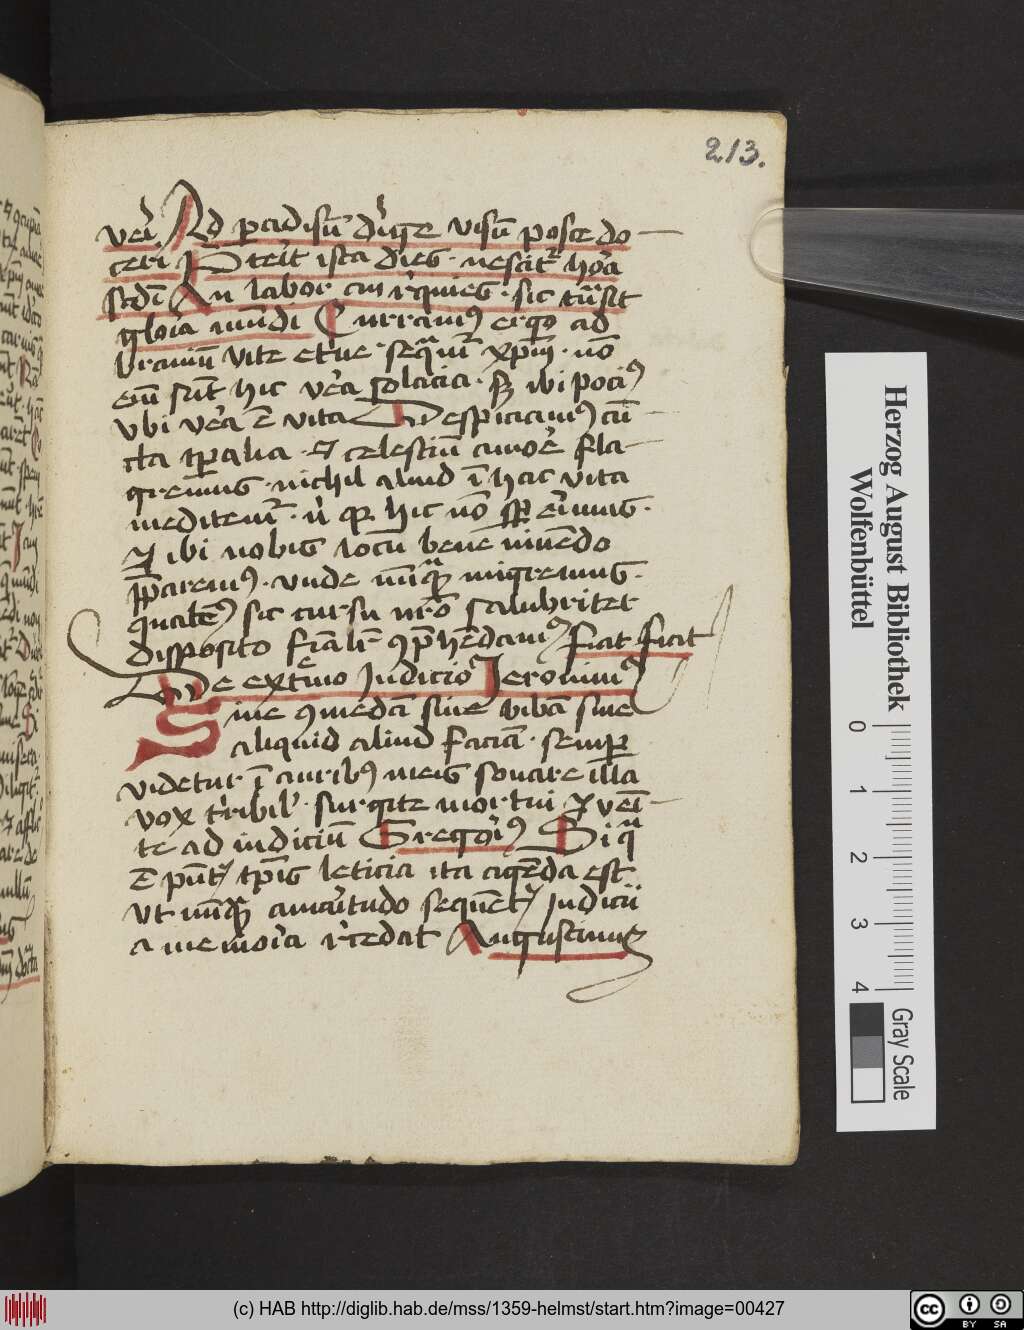 213.
vei̅ Ad paradisu̅ dirige visu̅ posce do-
ceri Preterit ista dies · nescitur hora
sed̅i An labor an requies · sic tra̅sit
gloia mundi Curramus ergo ad
braniu̅ vite et̅ne · sequam̅ xpm̅ · no̅
eni̅ su̅t hic vera solacia · sꝫ ibi pociꝰ
vbi vera e̅ vita Despiciamꝰ cu̅-
cta tꝑalia · ⁊ celestiu̅ amore fla-
gremus · nichil aliud i̅ hac vita
meditem̅ · hic no̅ erimus ·
⁊ ibi nobis locu̅ bene viuendo
p̅paremꝰ · vnde nu̅qua̅ migremus ·
sic cursu nr̅o salubriter
disposito ꝯp̅he̅damꝰ fiat fiat
De extremo Judicio Jeronimꝰ
Siue ꝯmeda̅ siue biba̅ siue
aliquid aliud facia̅ · semper
videtur i̅ auribꝰ meis sonare illa
vox t̅ribil̅ · surgite mortui ⁊ veni̅-
te ad iudiciu̅ Gregoriꝰ Si qu̅
e̅ pn̅tis tp̅is leticia ita age̅da est
vt nu̅qua̅ amaritudo seque̅tis Judicii
a memoria recedat Augustinus
Herzog August Bibliothek
Wolfenbüttel
0 1 2 3 4
Gray Scale
(c) HAB http://diglib.hab.de/mss/1359-helmst/start.htm?image=00427
cc BY SA